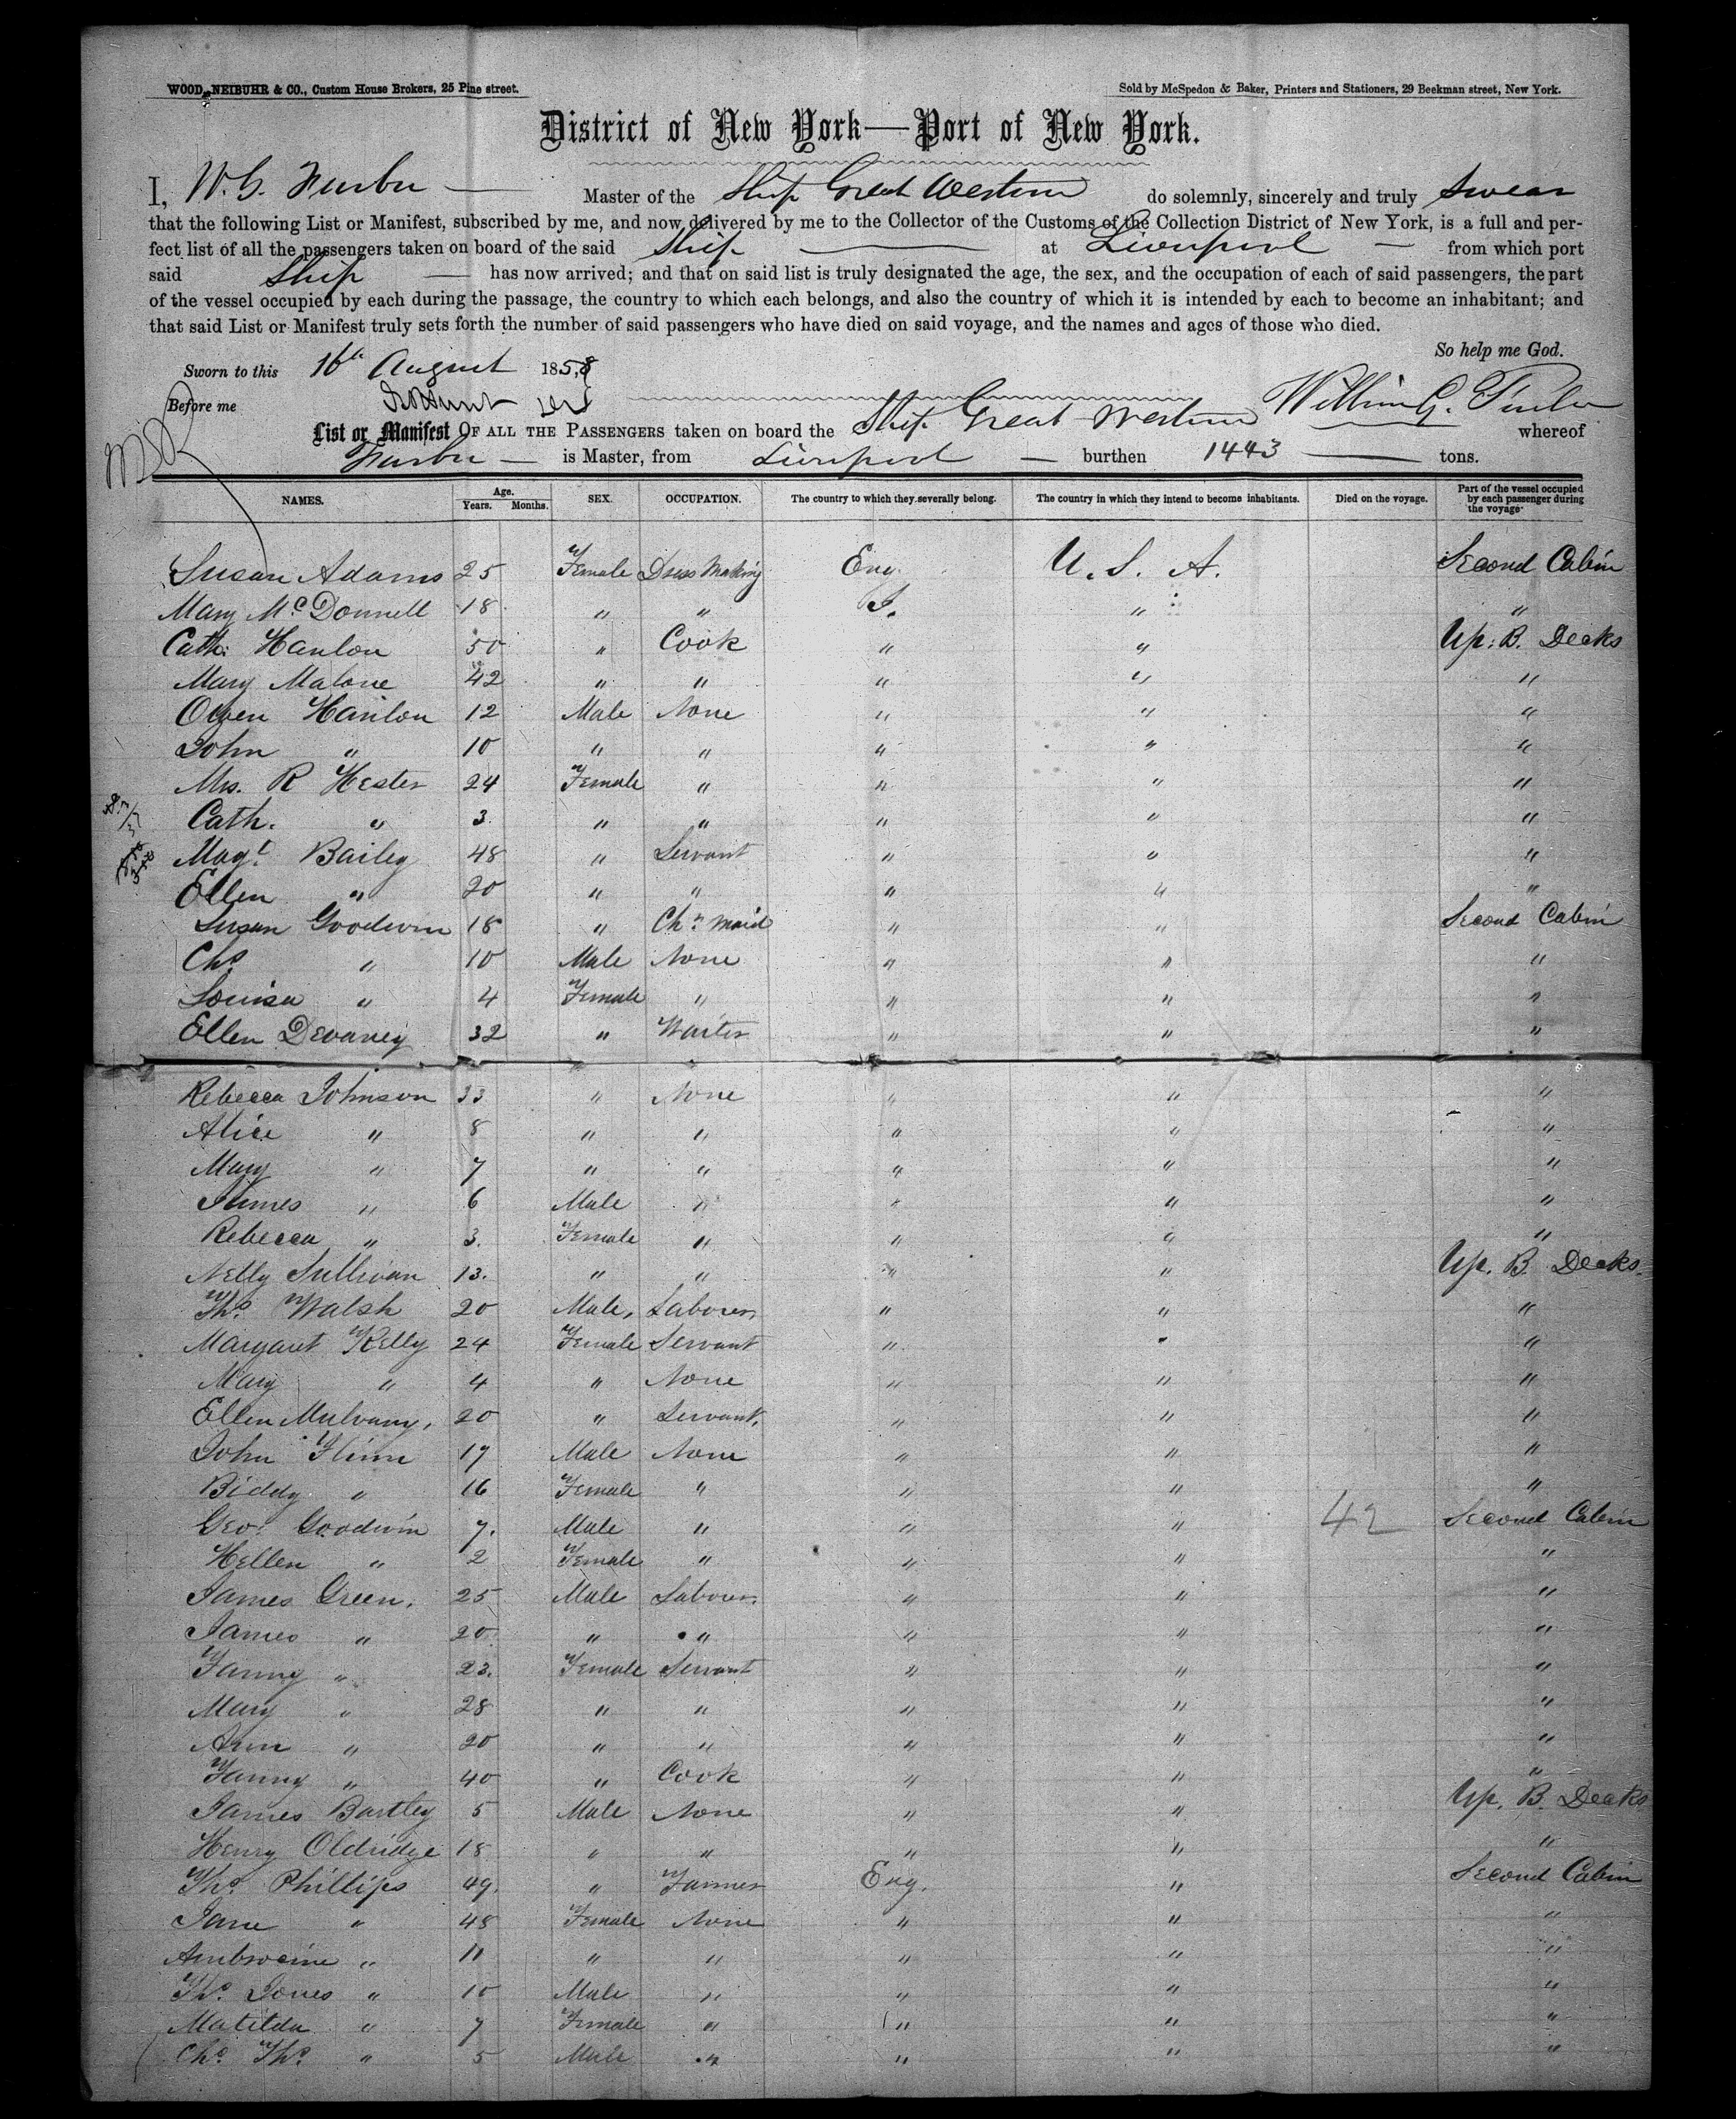 WOOD, NEIBUHR & CO., Custom House Brokers, 25 Pine street.
Sold by McSpedon & Baker, Printers and Stationers, 29 Beekman street, New York.
District of New York—Port of New York.
I, W. G. Furber — Master of the Ship Great Western do solemnly, sincerely and truly swear
that the following List or Manifest, subscribed by me, and now delivered by me to the Collector of the Customs of the Collection District of New York, is a full and per-
fect list of all the passengers taken on board of the said Ship — at Liverpool — from which port
said Ship — has now arrived; and that on said list is truly designated the age, the sex, and the occupation of each of said passengers, the part
of the vessel occupied by each during the passage, the country to which each belongs, and also the country of which it is intended by each to become an inhabitant; and
that said List or Manifest truly sets forth the number of said passengers who have died on said voyage, and the names and ages of those who died.
So help me God.
Sworn to this 16th August 1858
Before me
William G. Furber
List or Manifest OF ALL THE PASSENGERS taken on board the Ship Great Western whereof
Furber — is Master, from Liverpool — burthen 1443 — tons.
NAMES. Age. Years. Months. SEX. OCCUPATION. The country to which they severally belong. The country in which they intend to become inhabitants. Died on the voyage. Part of the vessel occupied by each passenger during the voyage.
Susan Adams 25 Female Dress Making Eng. U. S. A. Second Cabin
Mary McDonnell 18 " " I. " "
Cath: Hanlon 50 " Cook " " Up: B. Decks
Mary Malone 42 " " " " "
Owen Hanlon 12 Male None " " "
John " 10 " " " " "
Mrs. R Hester 24 Female " " " "
Cath. " 3 " " " " "
Magt. Bailey 48 " Servant " " "
Ellen " 20 " " " " "
Susan Goodwin 18 " Chn maid " " Second Cabin
Chs " 10 Male None " " "
Louisa " 4 Female " " " "
Ellen Devaney 32 " Waiter " " "
Rebecca Johnson 33 " None " " "
Alice " 8 " " " " "
Mary " 7 " " " " "
James " 6 Male " " " "
Rebecca " 3 Female " " " "
Nelly Sullivan 13. " " " " Up. B. Decks
Ths. Walsh 20 Male, Labourer " " "
Margaret Kelly 24 Female Servant " " "
Mary " 4 " None " " "
Ellen Mulvany, 20 " Servant, " " "
John Flinn 17 Male None " " "
Biddy " 16 Female " " " "
Geo. Goodwin 7. Male " " " 42 Second Cabin
Hellen " 2 Female " " " "
James Green. 25 Male Labourer " " "
James " 20 " " " " "
Fanny " 23. Female Servant " " "
Mary " 28 " " " " "
Ann " 20 " " " " "
Fanny " 40 " Cook " " "
James Bartley 5 Male None " " Up. B. Decks
Henry Oldridge 18 " " " " "
Ths. Phillips 49. " Farmer Eng. " Second Cabin
Jane " 48 Female None " " "
" 11 " " " " "
Ths. Jones " 10 Male " " " "
Matilda " 7 Female " " " "
Chs. Ths. " 5 Male " " " "